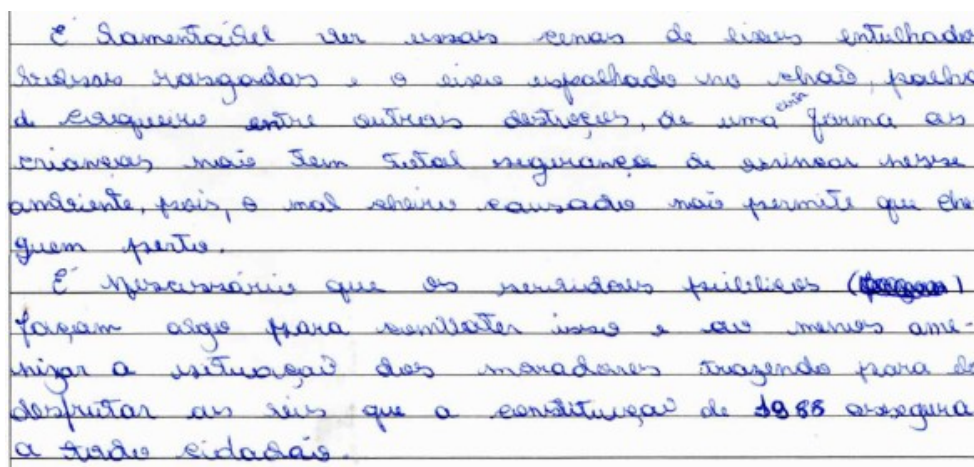 É lamentável ver essas cenas de lixos entulhados
bolsas rasgadas e o lixo espalhado no chão, palha
de coqueiro entre outros destroços, de uma certa forma as
crianças não tem total segurança de brincar nesse
ambiente, pois, o mal cheiro causado não permite que che-
guem perto.
É nescessário que os servidores públicos (
façam algo para combater isso e ao menos ame-
nizar a situação dos moradores trazendo para
desfrutar as leis que a constituição de 1988 assegura
a todo cidadão.